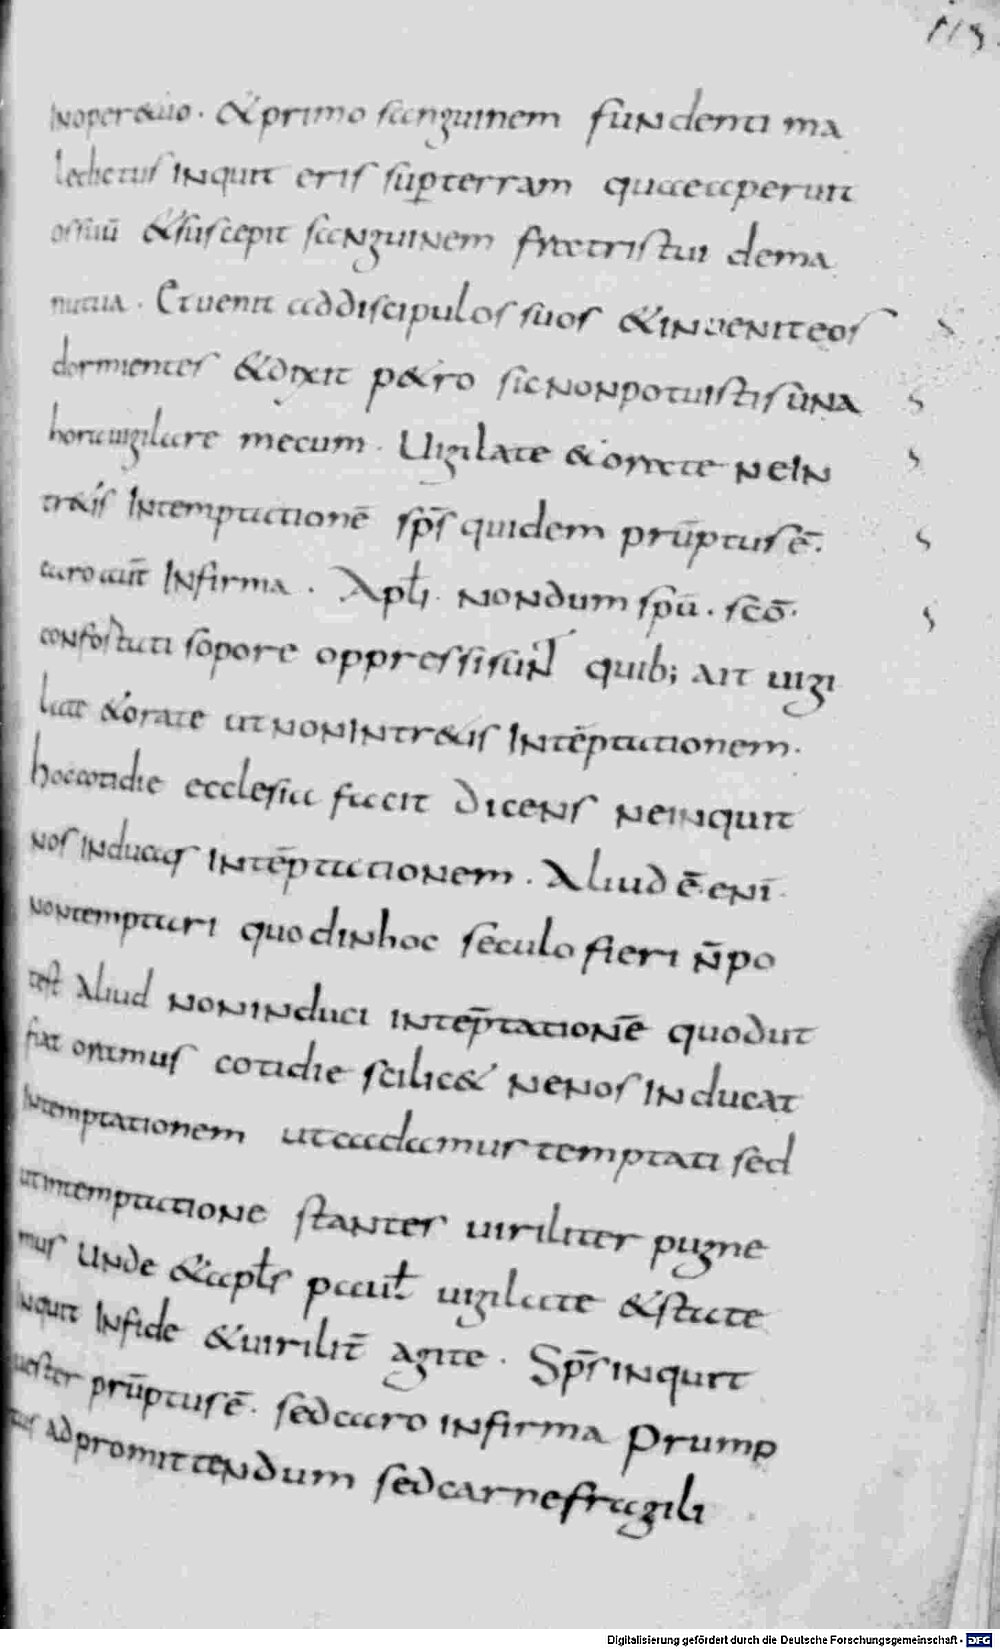 113.
INoperatio. & primo sanguinem fundenti ma
ledictus INquit eris sup terram quae aperuit
os suū & suscepit saNguiNem fratris tui dema
nu tua. Et uenit ad discipulos suos & iNueNit eos
dormientes & dixit p&ro sic NoN potuistis ūNa
hora uigilare mecum. Uigilate & orate Ne iN
tr&is INtemptationē sp̄s quidem prūptus ē.
caro aūt INfirma. Apłi. NoNdum spū. sc̄o.
coNfortati sopore oppressi suNt quib; ait uigi
late & orate ut NoN INtr&is INtēptationem.
hoc cotidie ecclesia facit diceNs Ne iNquit
Nos INducas INtēptatioNem. Aliud ē enī
NoN temptari quod iN hoc seculo fieri N̄ po
test Aliud NoN INduci iNtēptatioNē quod ut
fiat oramus cotidie scilic& Ne Nos INducat
INtemptationem ut cadamus temptati sed
ut in temptatioNe staNtes uiriliter pugne
mus UNde & apłs pauł uigilate & state
INquit INfide & uirilit̄ agite. Sp̄s iNquit
uester prūptus ē. sed caro iNfirma Prump
tus ad promitteNdum sed carne fragili
Digitalisierung gefördert durch die Deutsche Forschungsgemeinschaft - DFG